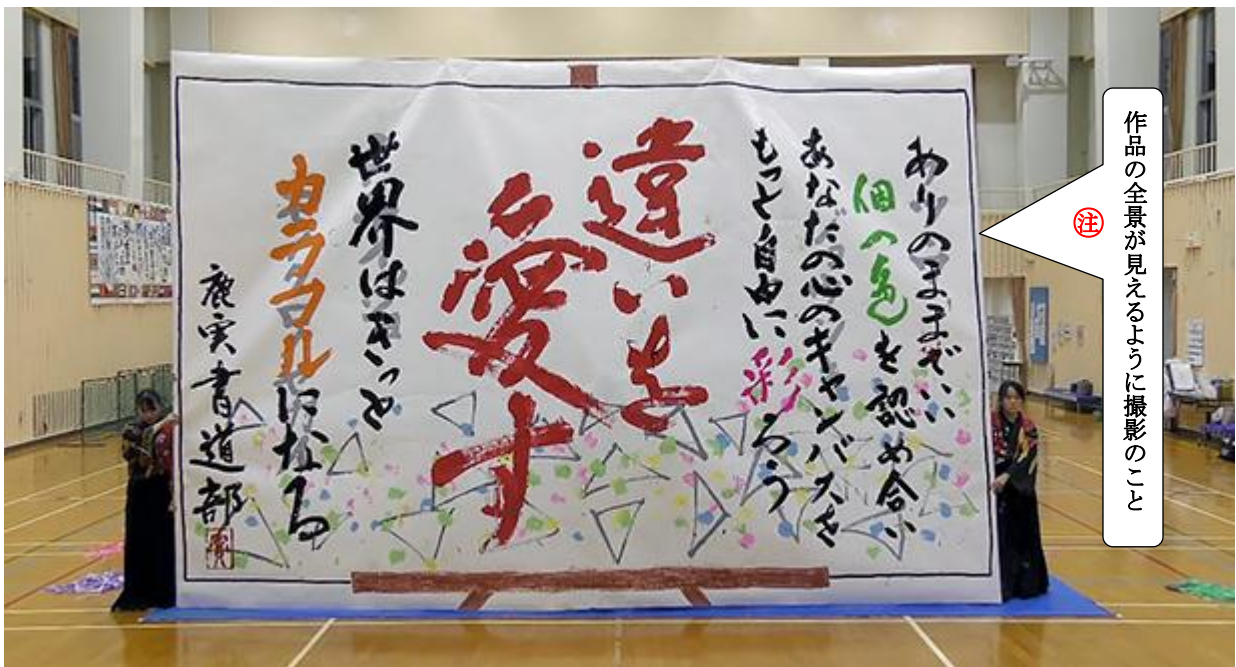 作品の全景が見えるように撮影のこと
注
ありのままでいい
個の色を認め合い
あなたの心のキャンバスを
もっと自由に彩ろう
違いを
愛す
世界はきっと
カラフルになる
鹿実書道部